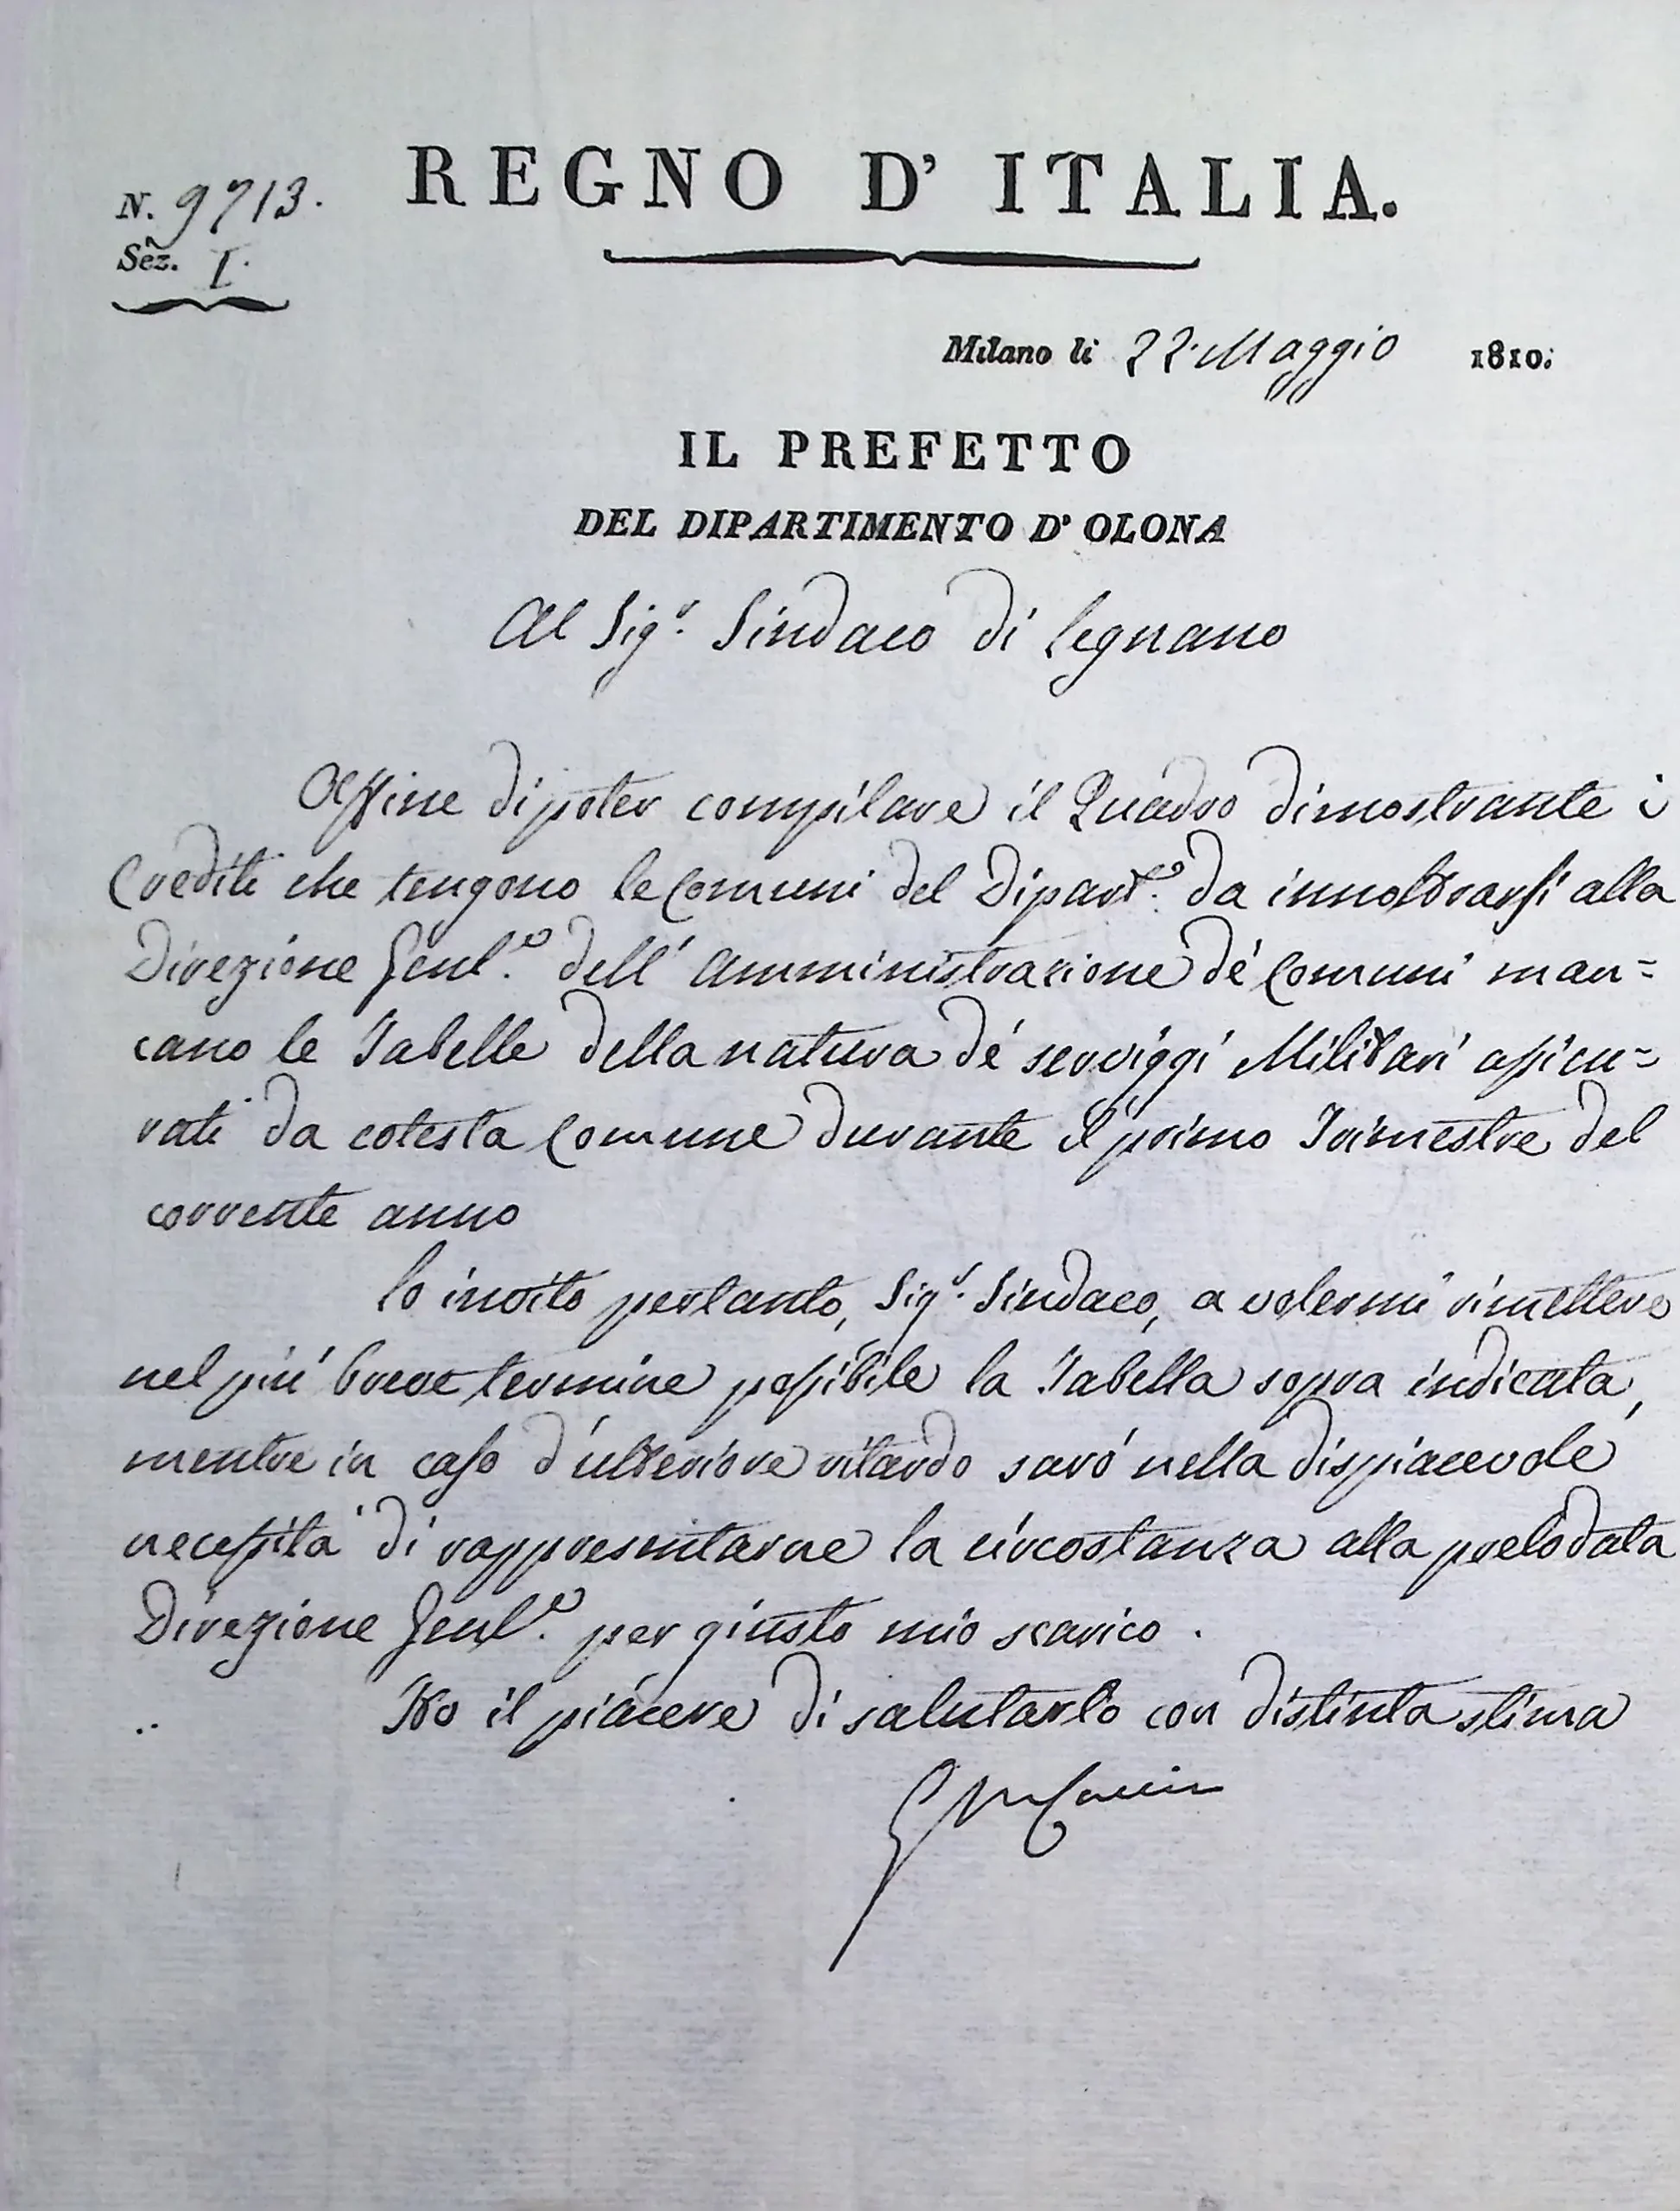 REGNO D' ITALIA.
N. 9713.
Sez. I.
Milano li 22. Maggio 1810.
IL PREFETTO
DEL DIPARTIMENTO D' OLONA
Al Sig.r Sindaco di Legnano
Affine di poter compilare il Quadro dimostrante i
Crediti che tengono le Comuni del Dipart.o da innoltrarsi alla
Direzione Genl.e dell' Amministrazione de' Comuni man=
cano le Tabelle della natura de' serviggi Militari assicu=
rati da cotesta Comune durante il primo Trimestre del
corrente anno
Lo invito pertanto, Sig.r Sindaco, a volermi rimettere
nel più breve termine possibile la Tabella sopra indicata,
mentre in caso d'ulteriore ritardo sarò nella dispiacevole
necessità di rappresentarne la circostanza alla prelodata
Direzione Genl.e per giusto mio scarico.
Ho il piacere di salutarlo con distinta stima